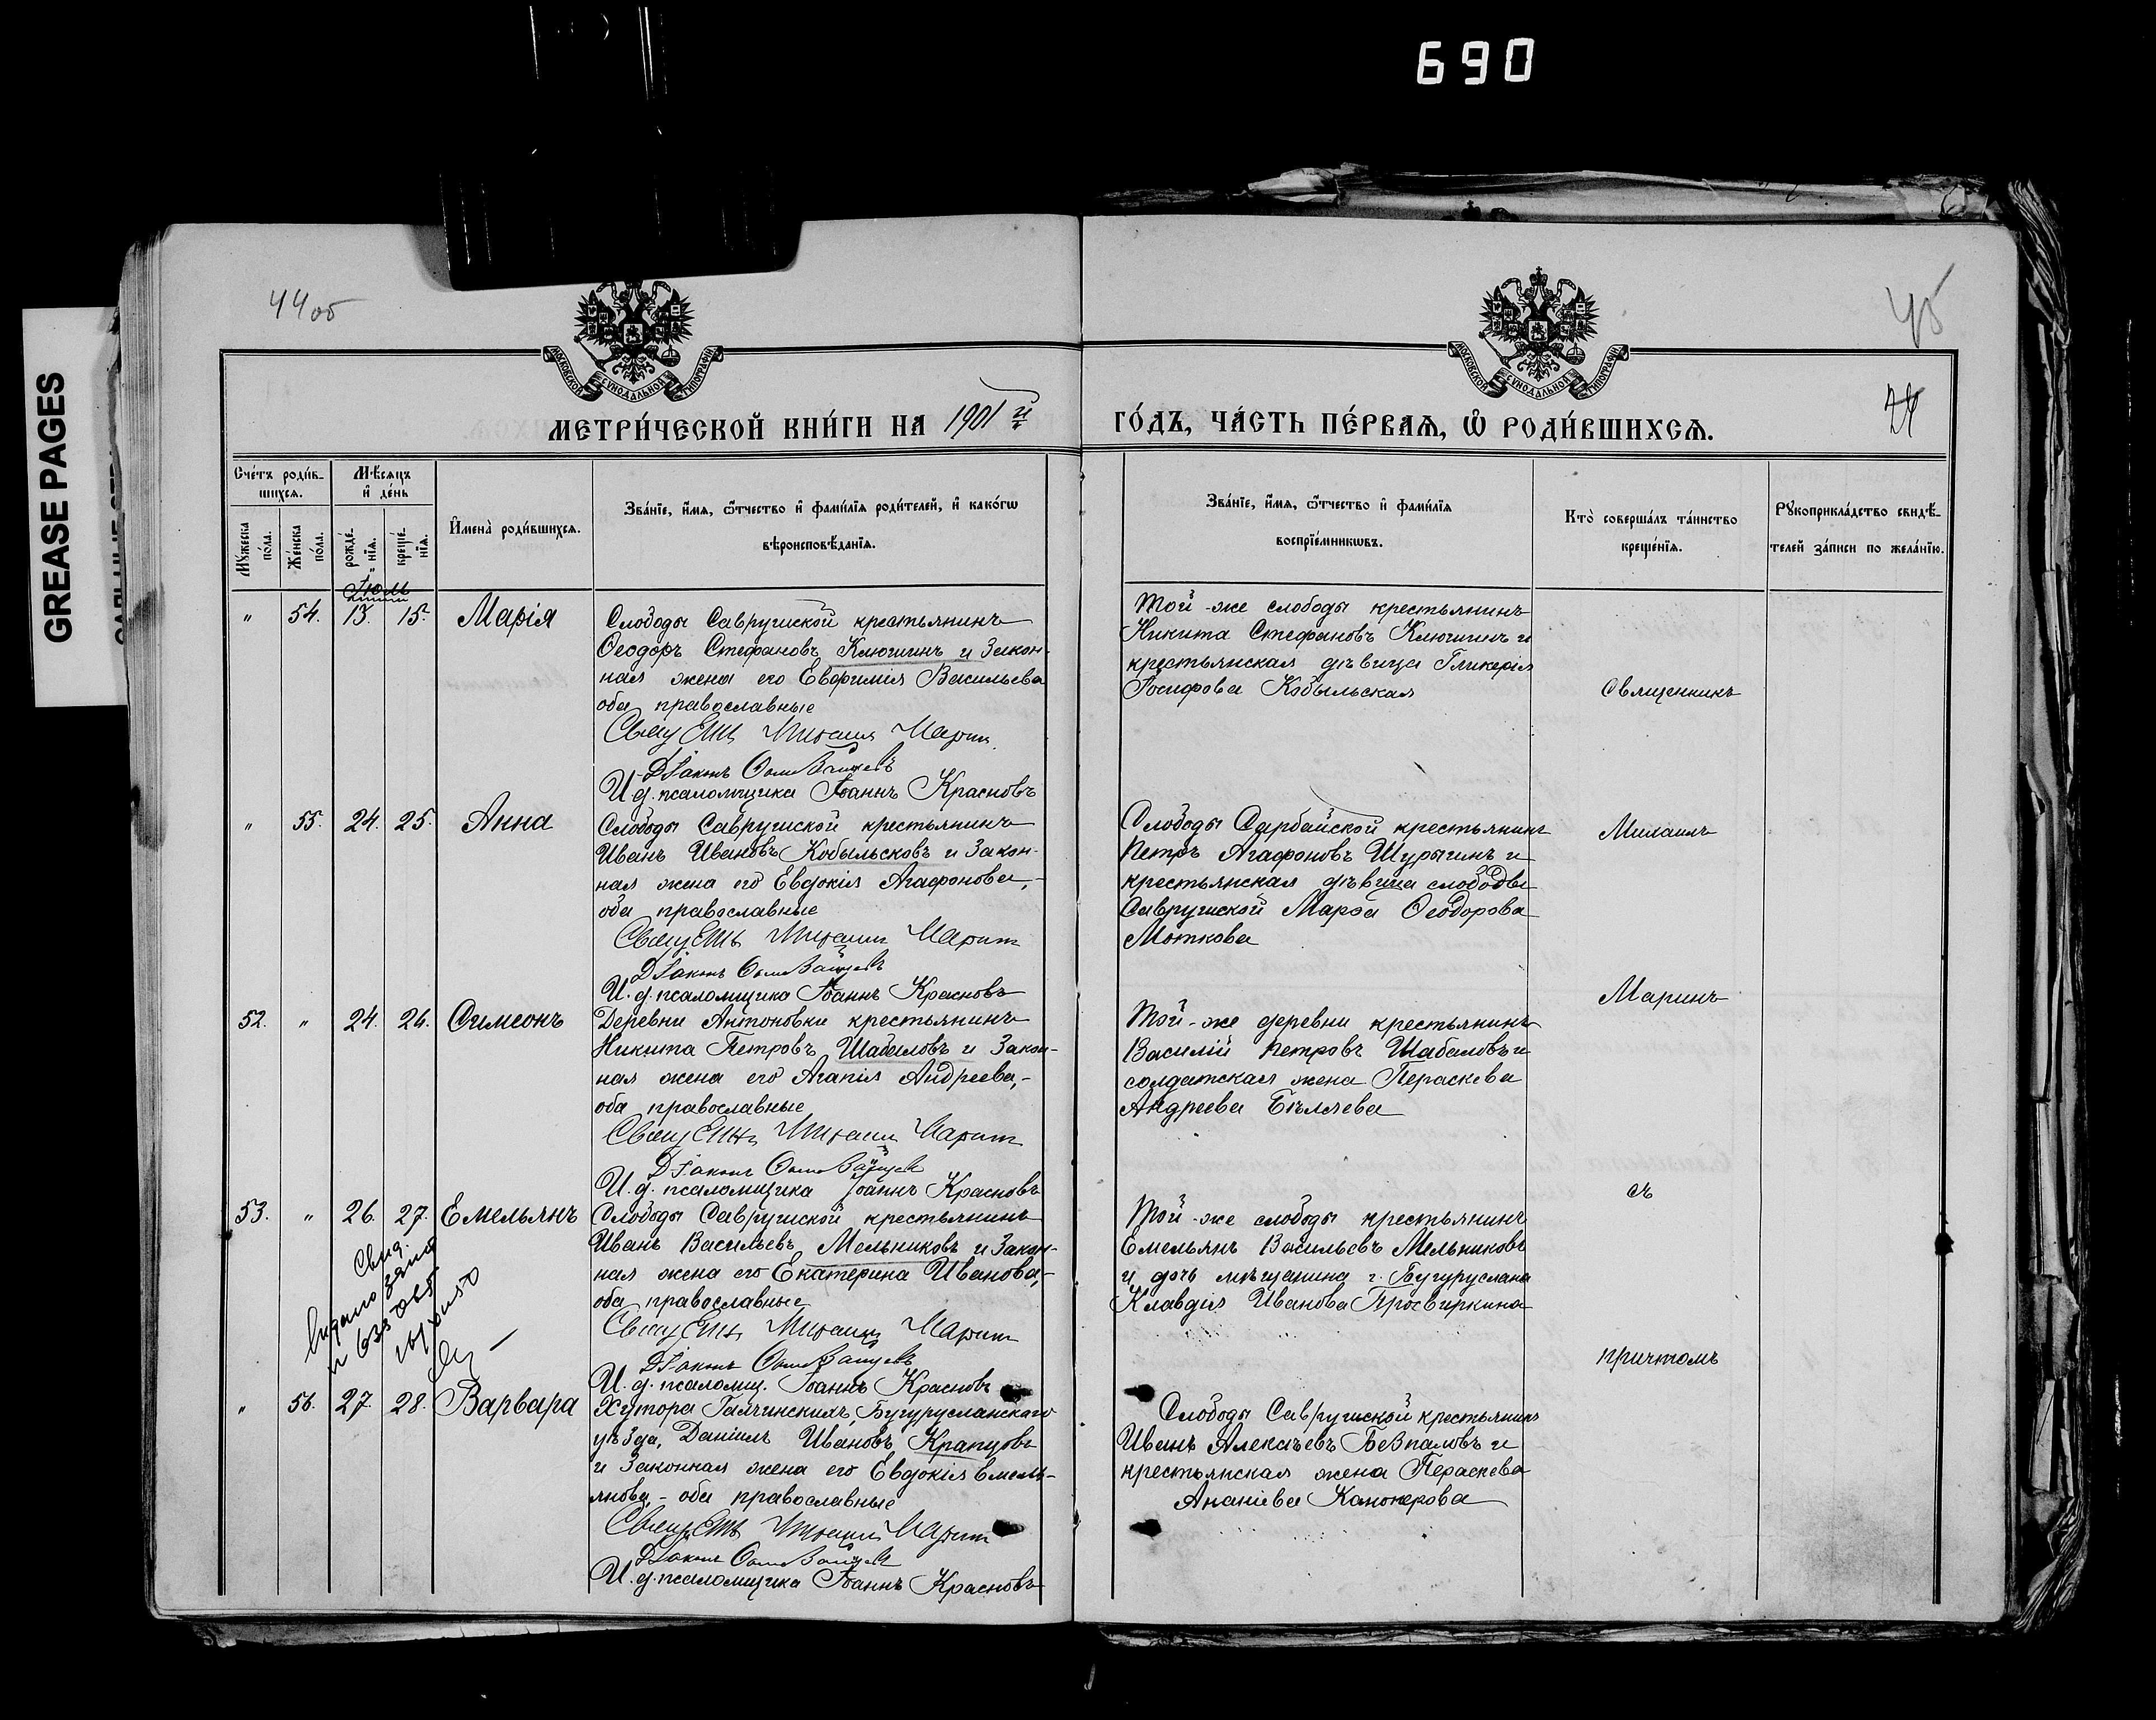 690
GREASE PAGES
44об
45
МЕТРИ́ЧЕСКОЙ КНИ́ГИ НА 1901 й
ГО́ДЪ, ЧА́СТЬ ПЕ́РВАѦ, Ѡ҆ РОДИ́ВШИХСѦ.
МОСКОВСКОЙ СѴНОДАЛЬНОЙ ТИПОГРАФІИ
МОСКОВСКОЙ СѴНОДАЛЬНОЙ ТИПОГРАФІИ
Сче́тъ роди́в-
шихсѧ.
Мѣ́сѧцъ
и҆ де́нь
Мꙋ́жеска по́ла.
Же́нска по́ла.
рожде́-нїѧ.
креще́-нїѧ.
И҆мена̀ роди́вшихсѧ.
Зва́нїе, и҆́мѧ, ѻ҆́тчество и҆ фами́лїѧ роди́телей, и҆ како́гѡ
вѣроисповѣ́данїѧ.
Зва́нїе, и҆́мѧ, ѻ҆́тчество и҆ фами́лїѧ
воспрїе́мникѡвъ.
Кто̀ соверша́лъ та́инство
креще́нїѧ.
Рꙋкоприкла́дство свидѣ́-
телей за́писи по жела́нїю.
Іюль
" 54. 13. 15. Марія
Слободы Саврушской крестьянинъ
Ѳеодоръ Стефановъ Клюшинъ и закон-
ная жена его Евфимія Васильева
оба православные
Священ Михаилъ Маринъ
Діаконъ
И. д. псаломщика Іоаннъ Красновъ
Той-же слободы крестьянинъ
Никита Стефановъ Клюшинъ и
крестьянская дѣвица Гликерія
Іосифова Кобыльская
Священникъ
" 55. 24. 25. Анна
Слободы Саврушской крестьянинъ
Иванъ Ивановъ Кобыльсковъ и закон-
ная жена его Евдокія Агафонова,-
оба православные
Священ Михаилъ Маринъ
Діаконъ
И. д. псаломщика Іоаннъ Красновъ
Слободы Сарбайской крестьянинъ
Петръ Агафоновъ Шурыгинъ и
крестьянская дѣвица слободы
Саврушской Марѳа Ѳеодорова
Моткова
Михаилъ
Маринъ
52. " 24. 26. Симеонъ
Деревни Антоновки крестьянинъ
Никита Петровъ Шабаловъ и закон-
ная жена его Агапія Андреева,-
оба православные
Священ Михаилъ Маринъ
Діаконъ
И. д. псаломщика Іоаннъ Красновъ
Той-же деревни крестьянинъ
Василій Петровъ Шабаловъ и
солдатская жена Параскева
Андреева Бѣляева
съ
53. " 26. 27. Емельянъ
Слободы Саврушской крестьянинъ
Иванъ Васильевъ Мельниковъ и закон-
ная жена его Екатерина Иванова,-
оба православные
Священ Михаилъ Маринъ
Діаконъ
И. д. псаломщ. Іоаннъ Красновъ
Той-же слободы крестьянинъ
Емельянъ Васильевъ Мельниковъ
и дочь мѣщанина г. Бугуруслана
Клавдія Иванова Просвиркина
причтомъ
" 56. 27. 28. Варвара
Хутора Бугурусланскаго
уѣзда, Даніилъ Ивановъ Крапцовъ
и законная жена его Евдокія Емель-
янова,- оба православные
Священ Михаилъ Маринъ
Діаконъ
И. д. псаломщика Іоаннъ Красновъ
Слободы Савруйской крестьянинъ
Иванъ Алексѣевъ Безпаловъ и
крестьянская жена Параскева
Ананіева Канонерова